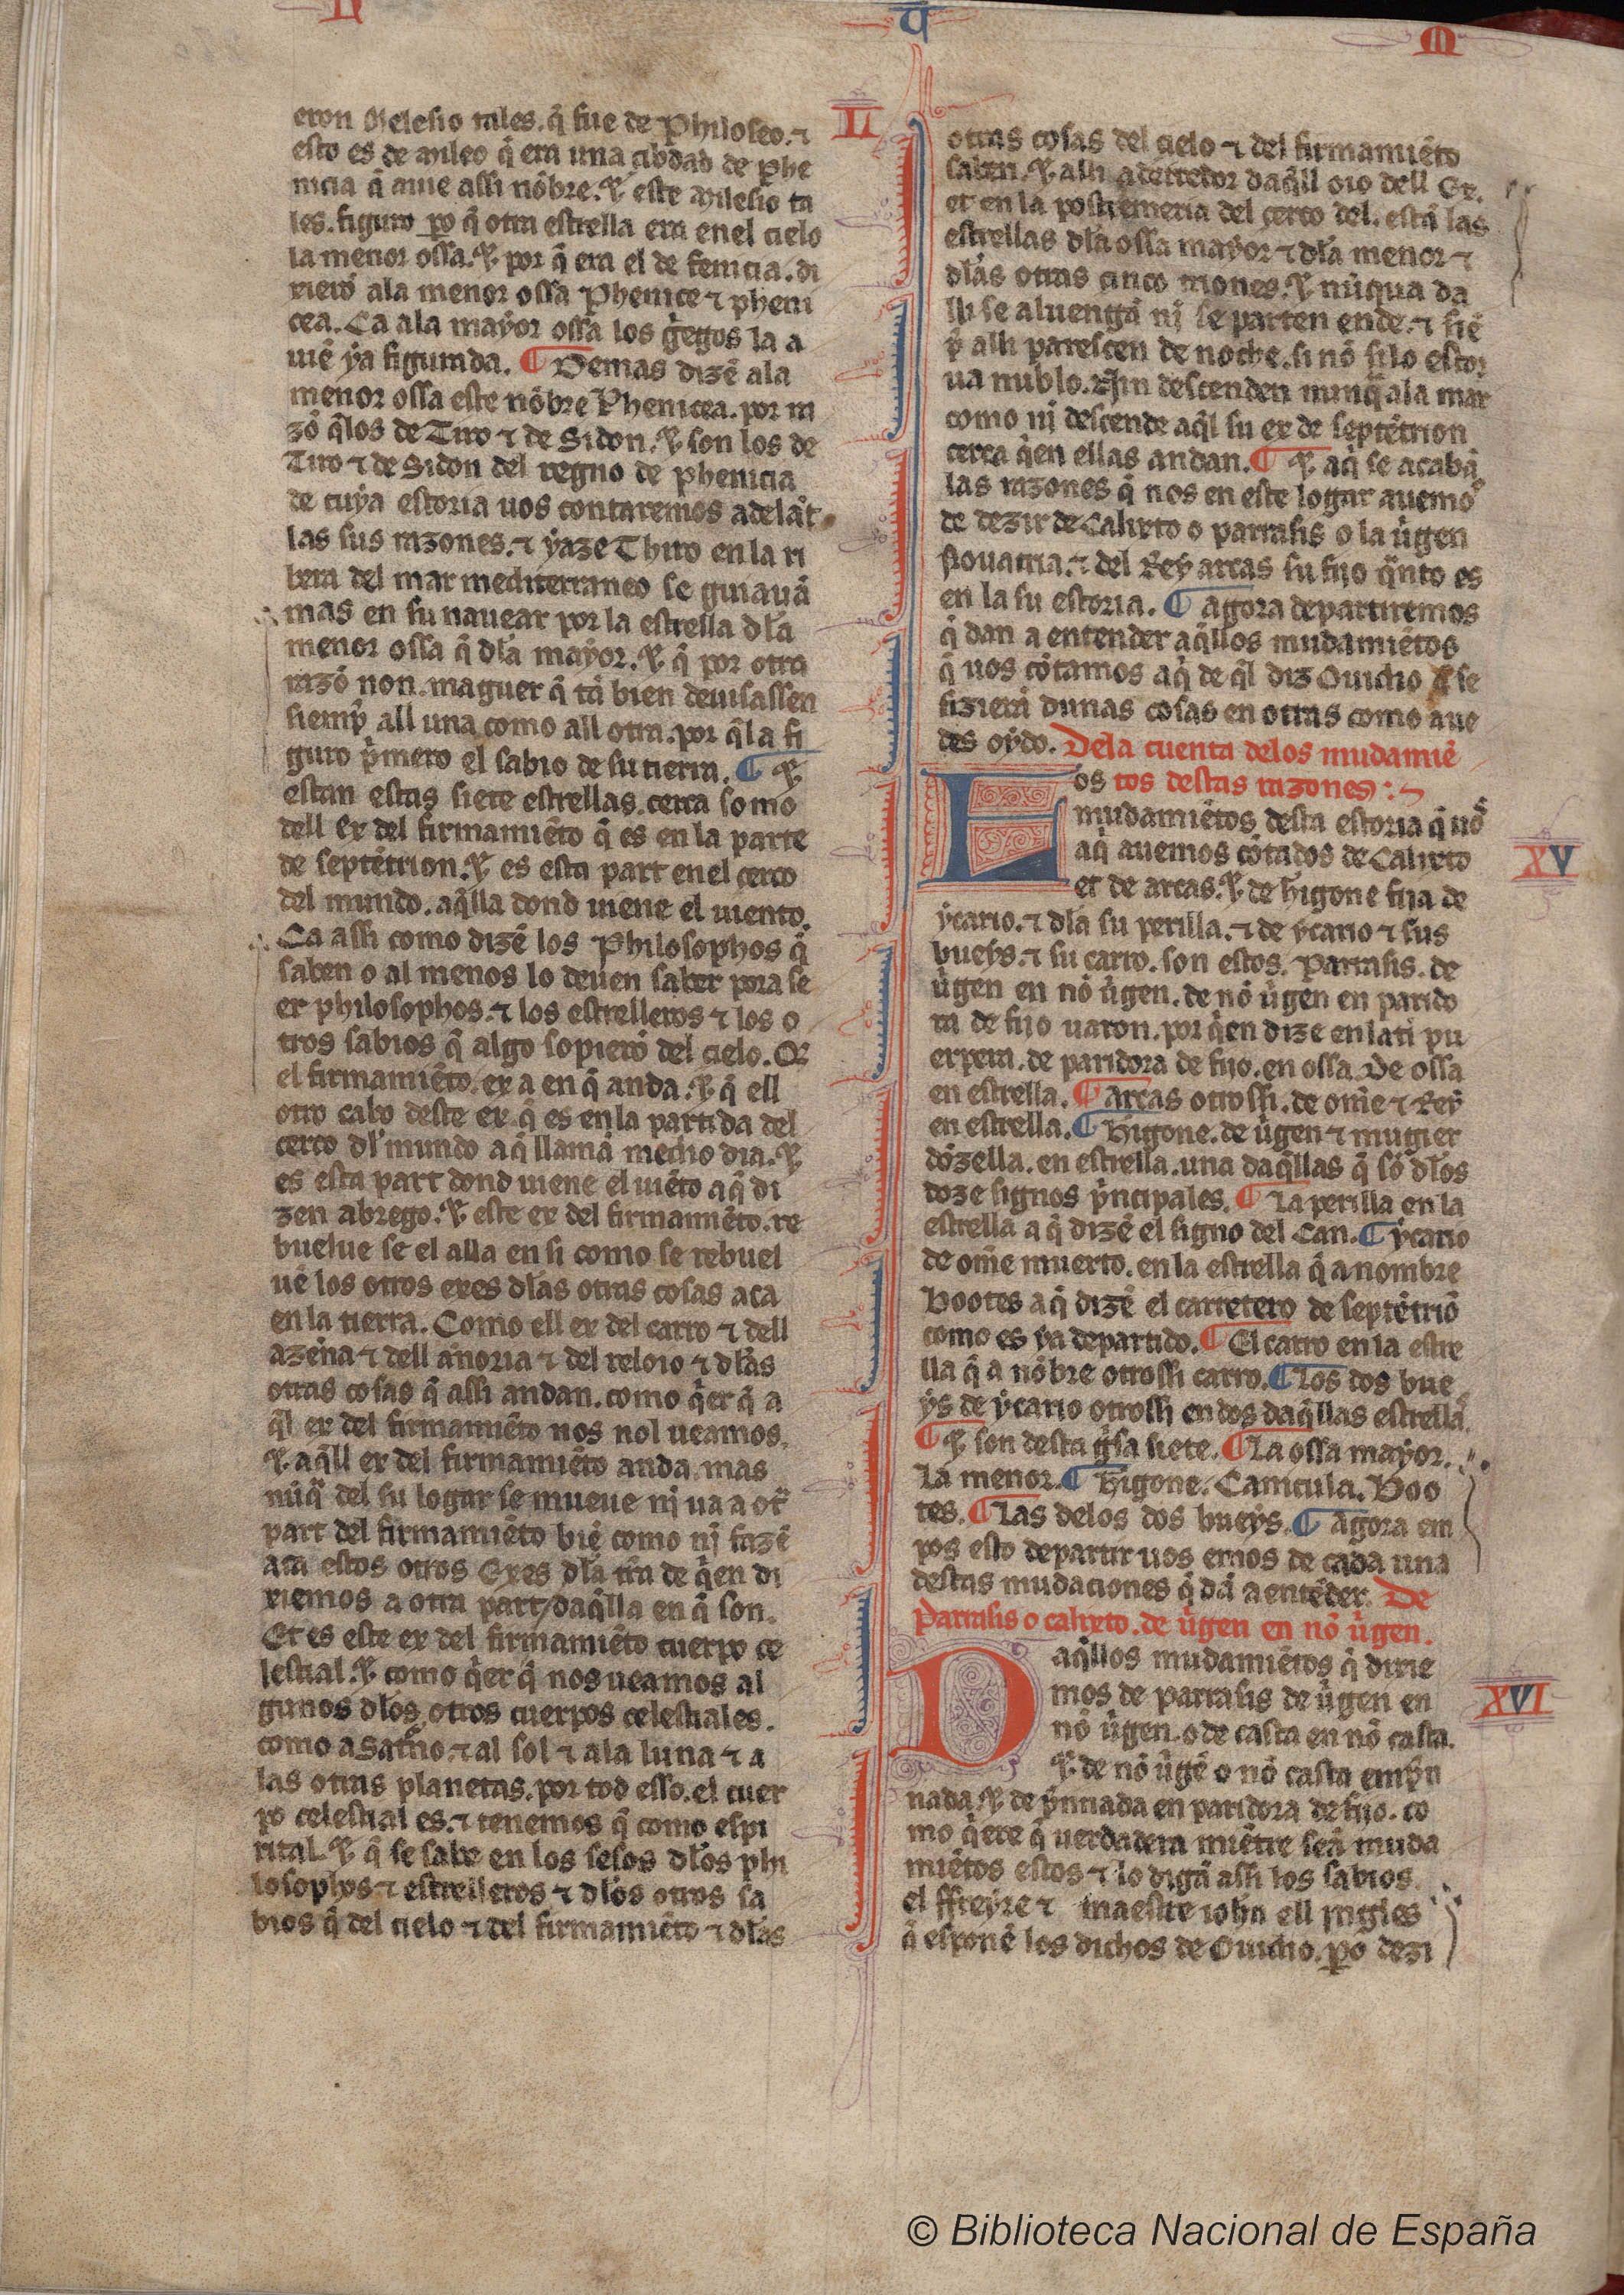 eron Melesio tales. q̃ fue de Philoseo. ⁊
esto es de mileo q̃ era una çibdad de phe
nicia q̃ auie assi nõbre. ⁊ este milesio ta
les. figuro po q̃ otra estrella era en el cielo
la menor ossa. ⁊ por q̃ era el de fenicia. di
xierõ ala menor ossa Phenice ⁊ pheni
cea. Ca ala mayor ossa los gr̃egos la a
uiẽ ya figurada. ¶ Demas dizẽ ala
menor ossa este nõbre Phenicea. por ra
zõ q̃los de Tiro ⁊ de Sidon. ⁊ son los de
Tiro ⁊ de Sidon del regno de phenicia
de cuya estoria uos contaremos adelãt
las sus razones. ⁊ yaze Thiro en la ri
bera del mar mediterraneo se guiauã
mas en su nauear por la estrella dl̃a
menor ossa q̃ dl̃a mayor. ⁊ q̃ por otra
razõ non. maguer q̃ tã bien deuisassen
siemp̃ all una como all otra. por q̃la fi
guro p̃mero el sabio de su tierra. ¶ ⁊
estan estas siete estrellas. cerca somo
dell ex del firmamiẽto q̃ es en la parte
de septẽtrion. ⁊ es esta part en el cerco
del mundo. aq̃lla dond uiene el uiento.
Ca assi como dizẽ los Philosophos q̃
saben o al menos lo deuen saber pora se
er philosophos. ⁊ los estrelleros ⁊ los o
tros sabios q̃ algo sopierõ del cielo. Q̃
el firmamiẽto. ex a en q̃ anda. ⁊ q̃ ell
otro cabo deste ex. q̃ es en la partida del
cerco dl̃ mundo aq̃ llamã medio dia. ⁊
es esta part dond uiene el uiẽto aq̃ di
zen abrego. ⁊ este ex del firmamiẽto. re
buelue se el alla en si como se rebuel
uẽ los otros exes dl̃as otras cosas aca
en la tierra. Como ell ex del carro ⁊ dell
azena ⁊ dell anoria ⁊ del reloio ⁊ dl̃as
otras cosas q̃ assi andan. como q̃er q̃ a
q̃l ex del firmamiẽto nos nol ueamos.
⁊ aq̃ll ex del firmamiẽto anda. mas
nũq̃ del su logar se mueue nj ua a otr̃
part del firmamiẽto biẽ como nj fazẽ
aca estos otros Exes dl̃a tr̃a de q̃en di
xiemos a otra part/daq̃lla en q̃ son.
Et es este ex del firmamiẽto cuerpo ce
lestial. ⁊ como q̃er q̃ nos ueamos al
gunos dl̃os otros cuerpos celestiales.
como a Sat̃no. ⁊ al sol ⁊ ala luna ⁊ a
las otras planetas. por tod esso. el cuer
po celestial es. ⁊ tenemos q̃ como espi
rital. ⁊ q̃ se sabe en los sesos dl̃os phi
losophos ⁊ estrelleros ⁊ dl̃os otros sa
bios q̃ del cielo ⁊ del firmamiẽto ⁊ dl̃as
L
otras cosas del cielo ⁊ del firmamiẽto
saben. ⁊ alli aderredor daq̃ll oio dell Ex.
et en la postremeria del cerco del. estã las
estrellas dl̃a ossa mayor ⁊ dl̃a menor ⁊
dl̃as otras cinco triones. ⁊ nũqua da
lli se aluengã nj se parten ende. ⁊ siẽ
p̃ alli parescen de noche. si nõ si lo estor
ua nublo. Njn descenden nunq̃ ala mar
como nj descende aq̃l su ex de septẽtrion
cerca q̃en ellas andan. ¶ ⁊ aq̃ se acabã
las razones q̃ nos en este logar auemos
de dezir de Calixto o parrasis o la ũgen
Nouacria. ⁊ del Rey arcas su fijo q̃nto es
en la su estoria. ¶ agora departiremos
q̃ dan a entender aq̃llos mudamiẽtos
q̃ uos cõtamos aq̃ de q̃l diz Ouidio q̃ se
fizierã dunas cosas en otras como aue
des oydo. Dela cuenta delos mudamiẽ
tos destas razones :~
XV
Los
mudamiẽtos desta estoria q̃ uos
aq̃ auemos cõtados de Calixto
et de arcas. ⁊ de higone fija de
ycario. ⁊ dl̃a su perilla. ⁊ de ycario ⁊ sus
bueys. ⁊ su carro. son estos. Parrasis. de
ũgen en nõ ũgen. de nõ ũgen en parido
ra de fijo uaron. por q̃en dize en latĩ pu
erpera. de paridora de fijo. en ossa. De ossa
en estrella. ¶ Arcas otrossi. de om̃e ⁊ Rey
en estrella. ¶ Higone. de ũgen ⁊ mugier
dõzella. en estrella. una daq̃llas q̃ sõ dl̃os
doze signos p̃ncipales. ¶ La perilla en la
estrella a q̃ dizẽ el signo del Can. ¶ ycario
de om̃e muerto. en la estrella q̃ a nombre
Bootes aq̃ dizẽ el carretero de septẽtriõ
como es ya departido. ¶ El carro en la estre
lla q̃ a nõbre otrossi carro. ¶ Los dos bue
ys de ycario otrossi en dos daq̃llas estrellas.
¶ ⁊ son desta g̃sa siete. ¶ La ossa mayor.
La menor. ¶ Higone. Canicula. Boo
tes. ¶ Las delos dos bueys. ¶ agora em
pos esto departir uos emos de cada una
destas mudaciones q̃ dã a entẽder. De
Parrasis o calixto. de ũgen en nõ ũgen.
XVI
D aq̃llos mudamiẽtos q̃ dixie
mos de parrasis de ũgen en
nõ ũgen. o de casta en nõ casta.
⁊ de nõ ũgẽ o nõ casta emp̃n
nada. ⁊ de p̃nnada en paridora de fijo. co
mo q̃ere q̃ uerdadera miẽtre seã muda
miẽtos estos ⁊ lo digã assi los sabios.
el ffreyre ⁊ maestre iohn ell yngles
q̃ esponẽ los dichos de Ouidio. po dezi
© Biblioteca Nacional de España